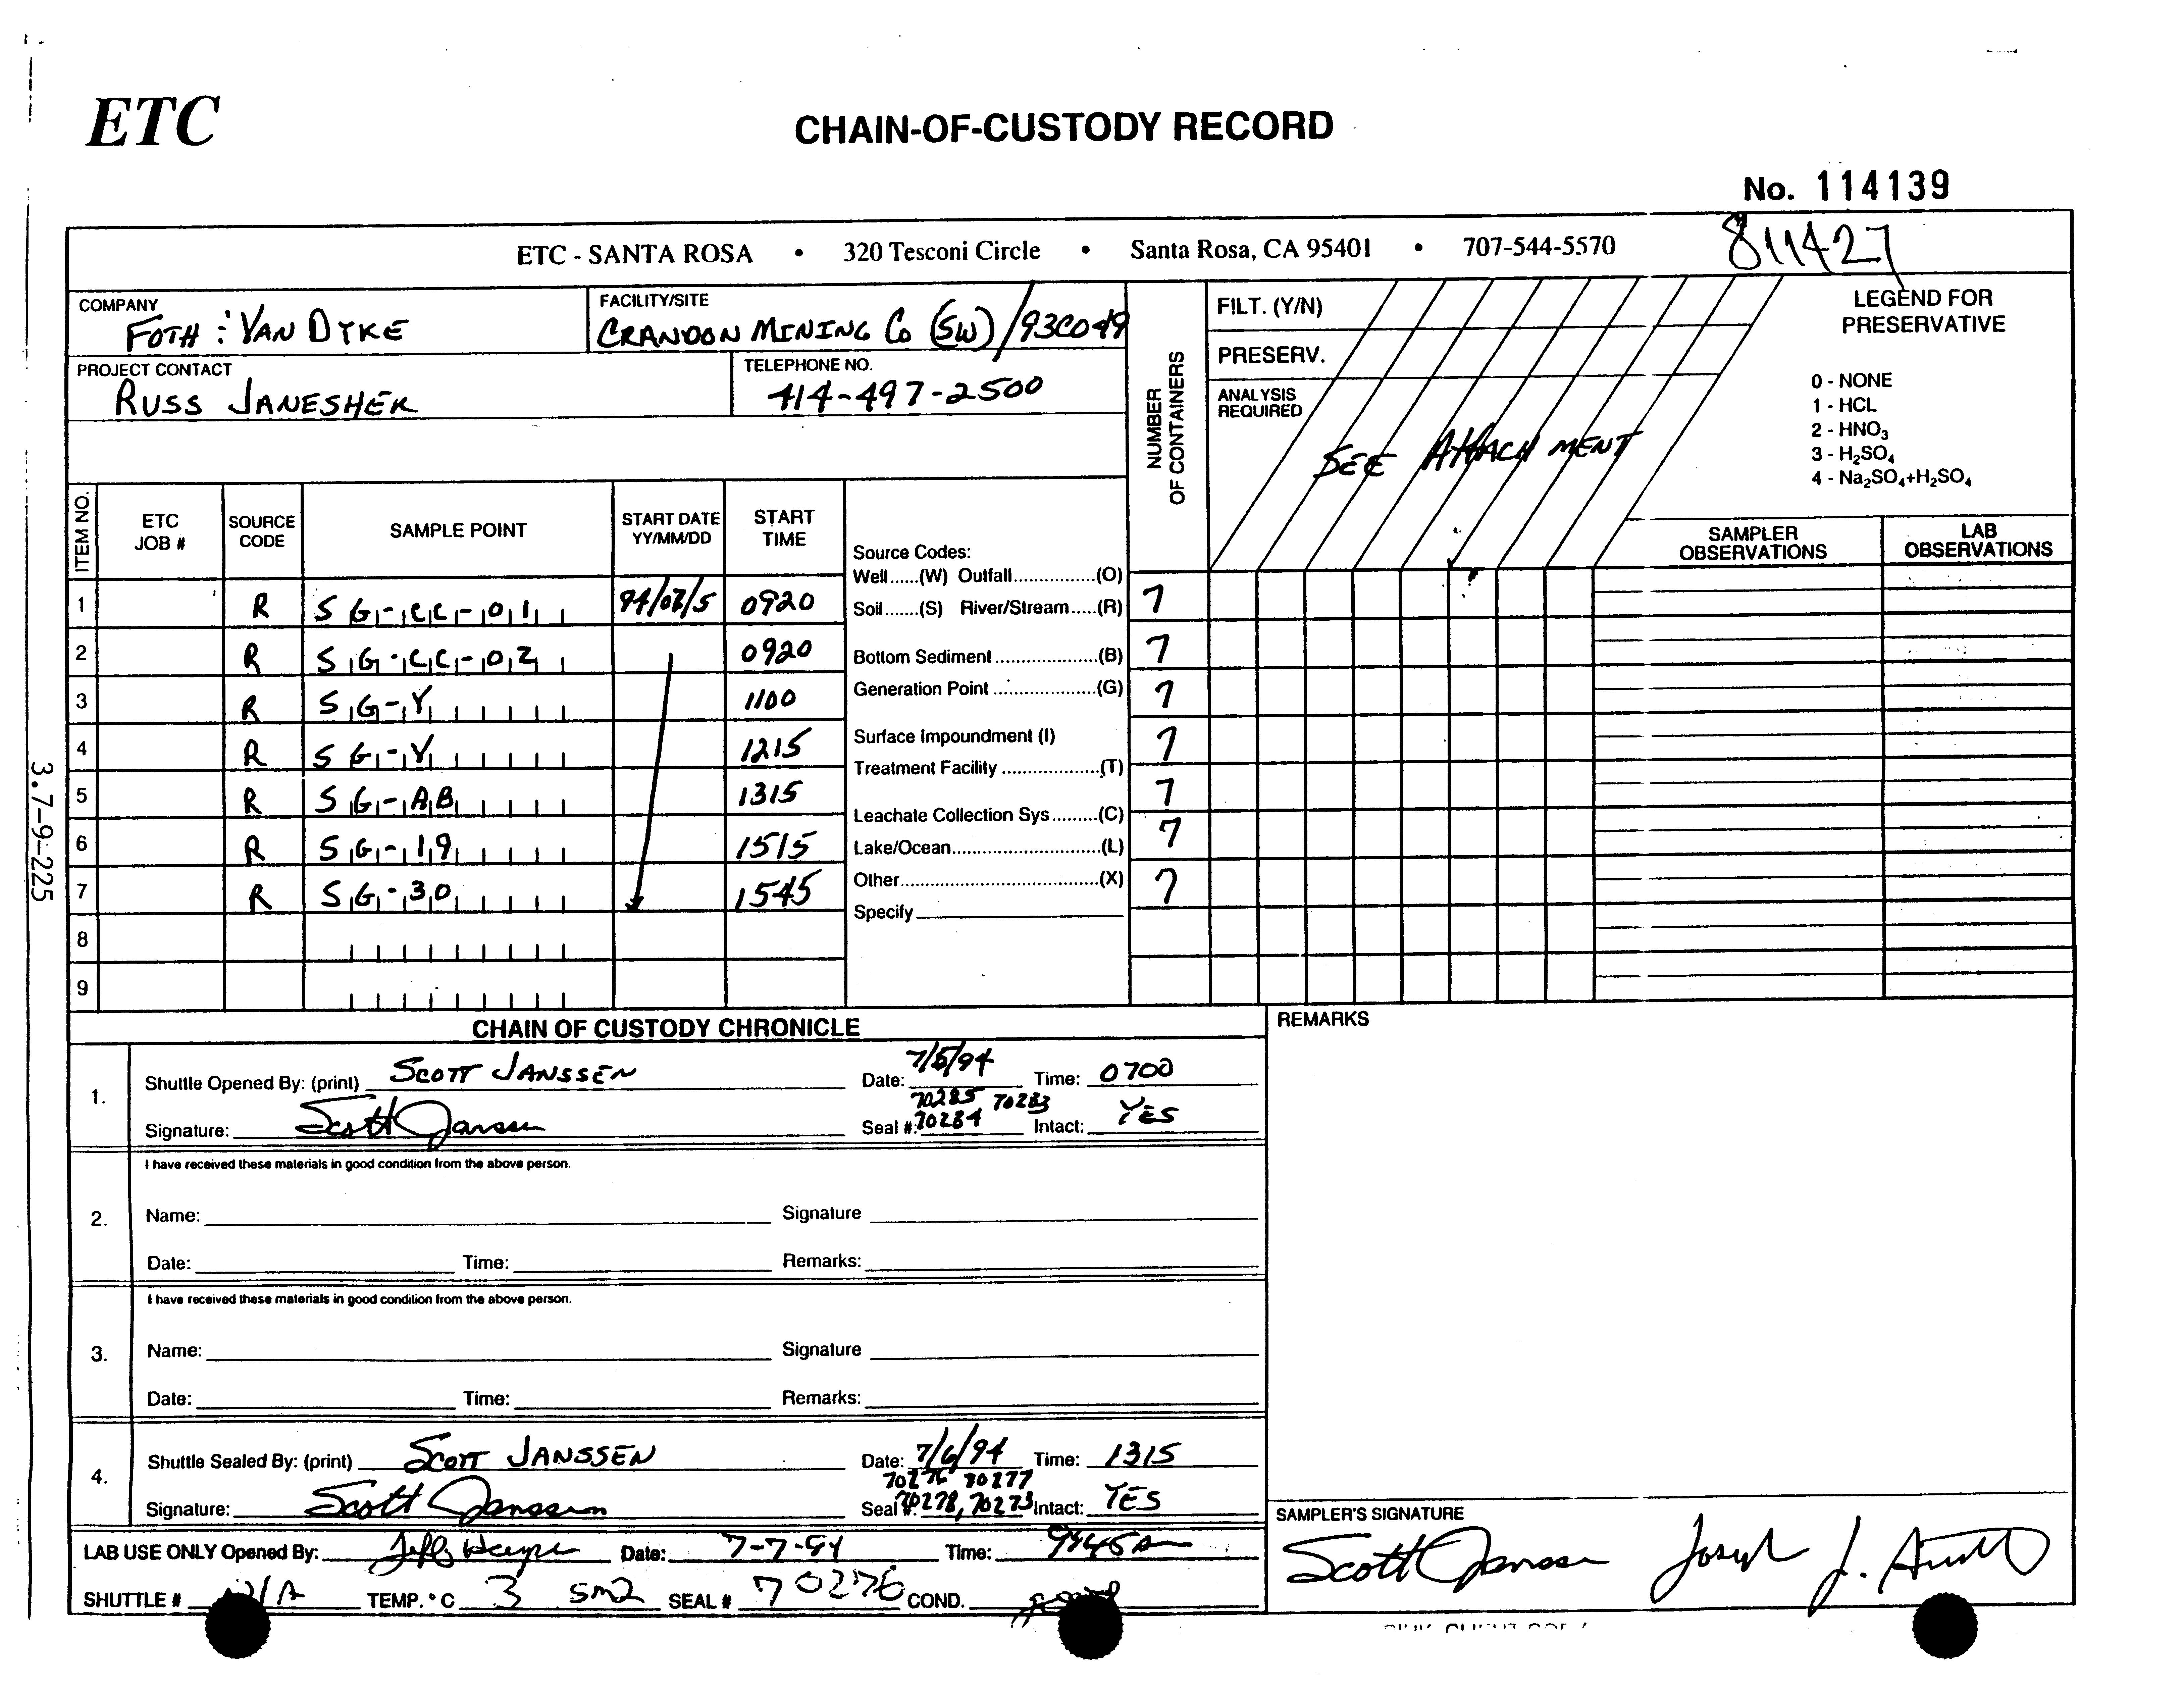 ETC
CHAIN-OF-CUSTODY RECORD
No. 114139
811427
ETC - SANTA ROSA • 320 Tesconi Circle • Santa Rosa, CA 95401 • 707-544-5570
COMPANY
FOTH : VAN DYKE
FACILITY/SITE
CRANDON MINING Co (SW) /93C049
PROJECT CONTACT
RUSS JANESHEK
TELEPHONE NO.
414-497-2500
NUMBER OF CONTAINERS
FILT. (Y/N)
PRESERV.
ANALYSIS REQUIRED
SEE ATTACHMENT
LEGEND FOR PRESERVATIVE
0 - NONE
1 - HCL
2 - HNO3
3 - H2SO4
4 - Na2SO4+H2SO4
ITEM NO. ETC JOB # SOURCE CODE SAMPLE POINT START DATE YY/MM/DD START TIME
SAMPLER OBSERVATIONS LAB OBSERVATIONS
1 R SG-CC-01 94/07/5 0920 7
2 R SG-CC-02 0920 7
3 R SG-Y 1100 7
4 R SG-Y 1215 7
5 R SG-AB 1315 7
6 R SG-19 1515 7
7 R SG-30 1545 7
8
9
Source Codes:
Well......(W) Outfall...............(O)
Soil.......(S) River/Stream.....(R)
Bottom Sediment...................(B)
Generation Point ...................(G)
Surface Impoundment (I)
Treatment Facility ..................(T)
Leachate Collection Sys.........(C)
Lake/Ocean............................(L)
Other.....................................(X)
Specify
3.7-9-225
CHAIN OF CUSTODY CHRONICLE
REMARKS
1.
Shuttle Opened By: (print) SCOTT JANSSEN Date: 7/5/94 Time: 0700
70285 70283
Signature: Scott Janssen Seal #: 70284 Intact: YES
I have received these materials in good condition from the above person.
2. Name: Signature
Date: Time: Remarks:
I have received these materials in good condition from the above person.
3. Name: Signature
Date: Time: Remarks:
4.
Shuttle Sealed By: (print) SCOTT JANSSEN Date: 7/6/94 Time: 1315
70276 70277
Signature: Scott Janssen Seal #: 70278, 70273 Intact: YES
LAB USE ONLY Opened By: Date: 7-7-94 Time:
SHUTTLE # N/A TEMP. °C 3 SEAL # 70276 COND.
SAMPLER'S SIGNATURE
Scott Janssen Joseph J.